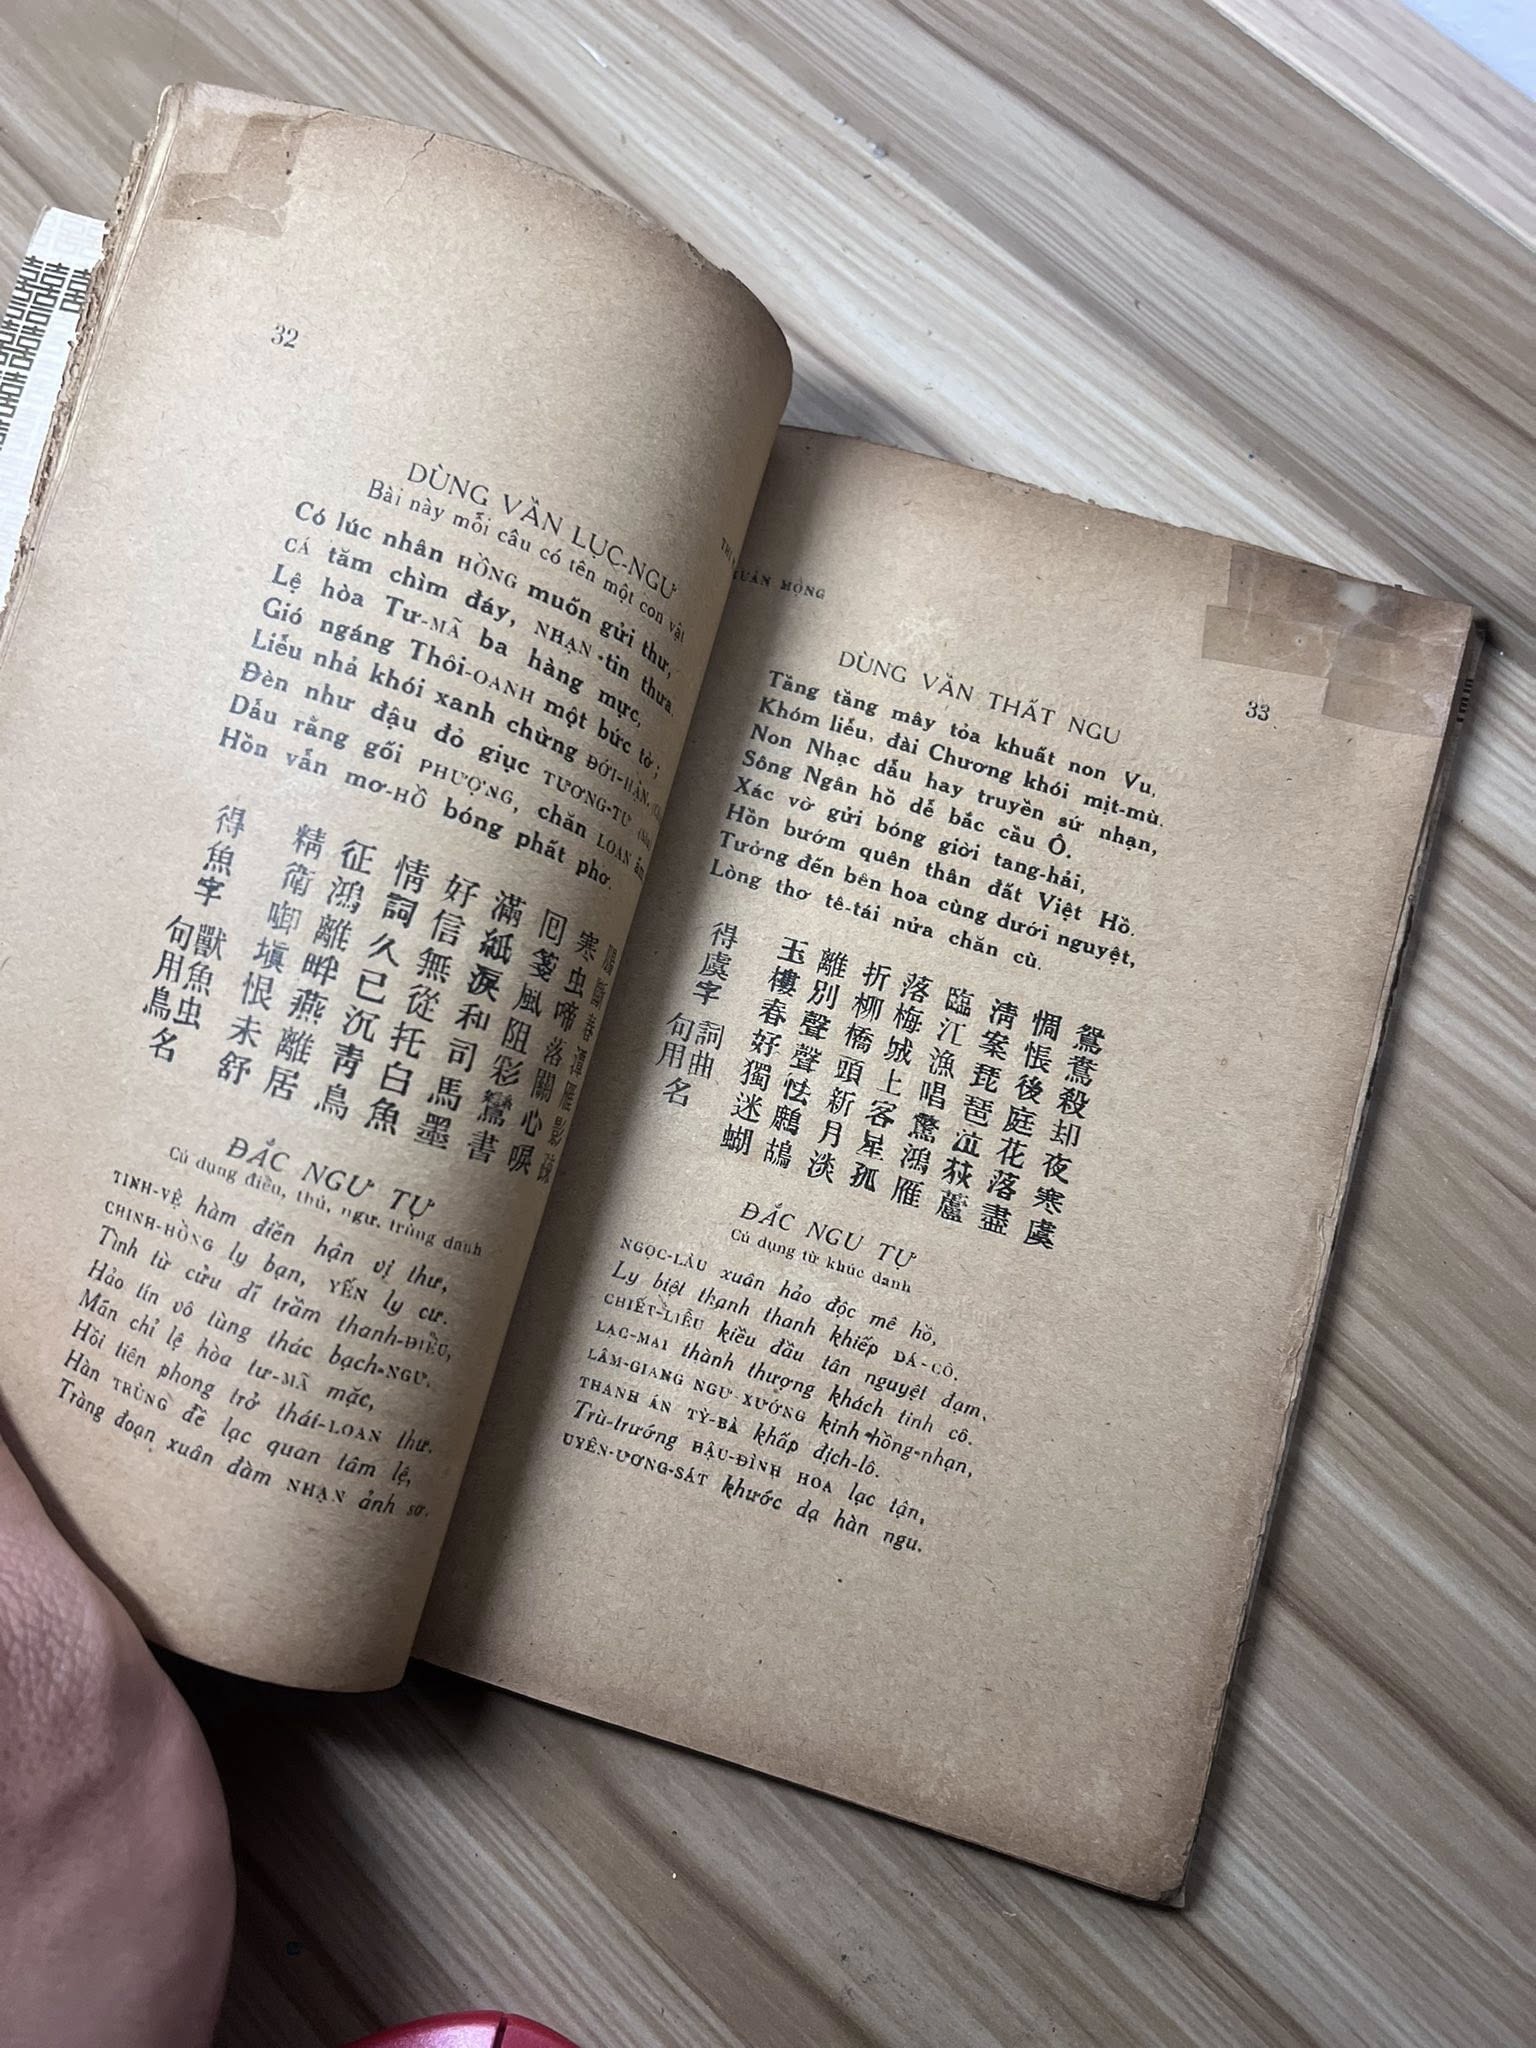 32
DÙNG VẦN LỤC-NGƯ
Bài này mỗi câu có tên một con vật
Có lúc nhân HỒNG muốn gửi thư,
CÁ tăm chìm đáy, NHẠN tin thưa.
Lệ hòa Tư-MÃ ba hàng mực,
Gió ngáng Thôi-OANH một bức tờ;
Liễu nhả khói xanh chừng ĐỚI-HẬN,
Đèn như đậu đỏ giục TƯƠNG-TƯ
Dẫu rằng gối PHƯỢNG, chăn LOAN ấm
Hồn vẫn mơ-HỒ bóng phất phơ.
得魚字
句用鳥獸魚虫名
精衛啣塡恨未舒
征鴻離畔燕離居
情詞久已沉靑鳥
好信無從托白魚
滿紙淚和司馬墨
回箋風阻彩鸞書
寒虫啼落關心淚
ĐẮC NGƯ TỰ
Cú dụng điểu, thú, ngư, trùng danh
TINH-VỆ hàm điền hận vị thư,
CHINH-HỒNG ly bạn, YẾN ly cư.
Tình từ cửu dĩ trầm thanh-ĐIỂU,
Hảo tín vô tùng thác bạch-NGƯ.
Mãn chỉ lệ hòa tư-MÃ mặc,
Hồi tiên phong trở thái-LOAN thư.
Hàn TRÙNG đề lạc quan tâm lệ,
Tràng đoạn xuân đàm NHẠN ảnh sơ.
XUÂN MỘNG
33
DÙNG VẦN THẤT NGU
Tầng tầng mây tỏa khuất non Vu,
Khóm liễu, đài Chương khói mịt-mù.
Non Nhạc dẫu hay truyền sứ nhạn,
Sông Ngân hồ dễ bắc cầu Ô.
Xác vờ gửi bóng giời tang-hải,
Hồn bướm quên thân đất Việt Hồ.
Tưởng đến bên hoa cùng dưới nguyệt,
Lòng thơ tê-tái nửa chăn cù.
得虞字
句用詞曲名
玉樓春好獨迷蝴
離別聲聲怯鷓鴣
折柳橋頭新月淡
落梅城上客星孤
臨江漁唱驚鴻雁
淸案琵琶泣荻蘆
惆悵後庭花落盡
鴛鴦殺却夜寒虞
ĐẮC NGU TỰ
Cú dụng từ khúc danh
NGỌC-LÂU xuân hảo độc mê hồ,
Ly biệt thanh thanh khiếp DÁ-CÔ.
CHIẾT-LIỄU kiều đầu tân nguyệt đạm,
LẠC-MAI thành thượng khách tinh cô.
LÂM-GIANG NGƯ XƯỚNG kinh hồng-nhạn,
THANH ÁN TỲ-BÀ khấp địch-lô.
Trù-trướng HẬU-ĐÌNH HOA lạc tận,
UYÊN-ƯƠNG-SÁT khước dạ hàn ngu.